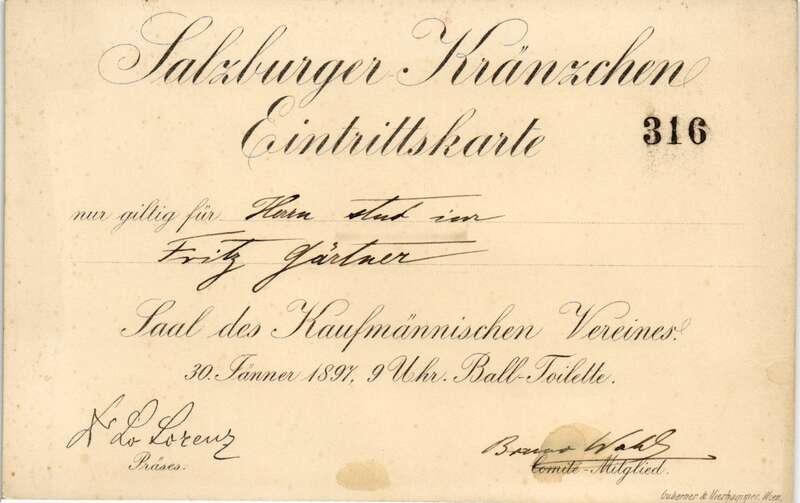 Salzburger Kränzchen
Eintrittskarte 316
nur giltig für Herrn stud iur
Fritz Gärtner
Saal des Kaufmännischen Vereines.
30. Jänner 1897, 9 Uhr. Ball-Toilette.
Lorenz
Präses.
Bruno
Comité-Mitglied.
Guberner & Hierhammer, Wien.